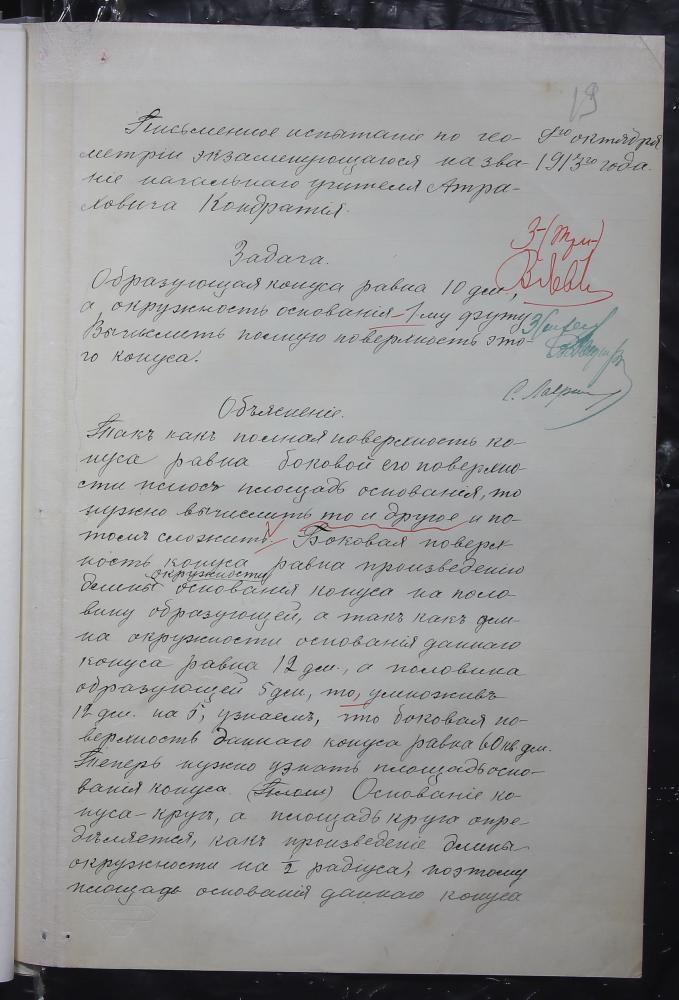 19
Письменное испытанiе по гео-
9го октября
метрiи экзаменующагося на зва-
1913го года.
нiе начальнаго учителя Атра-
ховича Кондратiя.
3-(три-)
Задача.
Образующая конуса равна 10 дм.,
а окружность основанiя - 1му футу
Вычислить полную поверхность это-
го конуса.
Объясненiе.
Такъ какъ полная поверхность ко-
нуса равна боковой его поверхно
сти плюсъ площадь основанiя, то
нужно вычислить то и другое и по-
томъ сложить. Боковая поверх
ность конуса равна произведенiю
окружности
длины основанiя конуса на поло-
вину образующей, а такъ какъ дли-
на окружности основанiя даннаго
конуса равна 12 дм., а половина
образующей 5 дм., то, умноживъ
12 дм. на 5, узнаемъ, что боковая по-
верхность даннаго конуса равна 60 кв. дм.
Теперь нужно узнать площадь осно-
ванiя конуса. Основанiе ко-
нуса-кругъ, а площадь круга опре-
дѣляется, какъ произведенiе длины
окружности на 1/2 радiуса, поэтому
площадь основанiя даннаго конуса